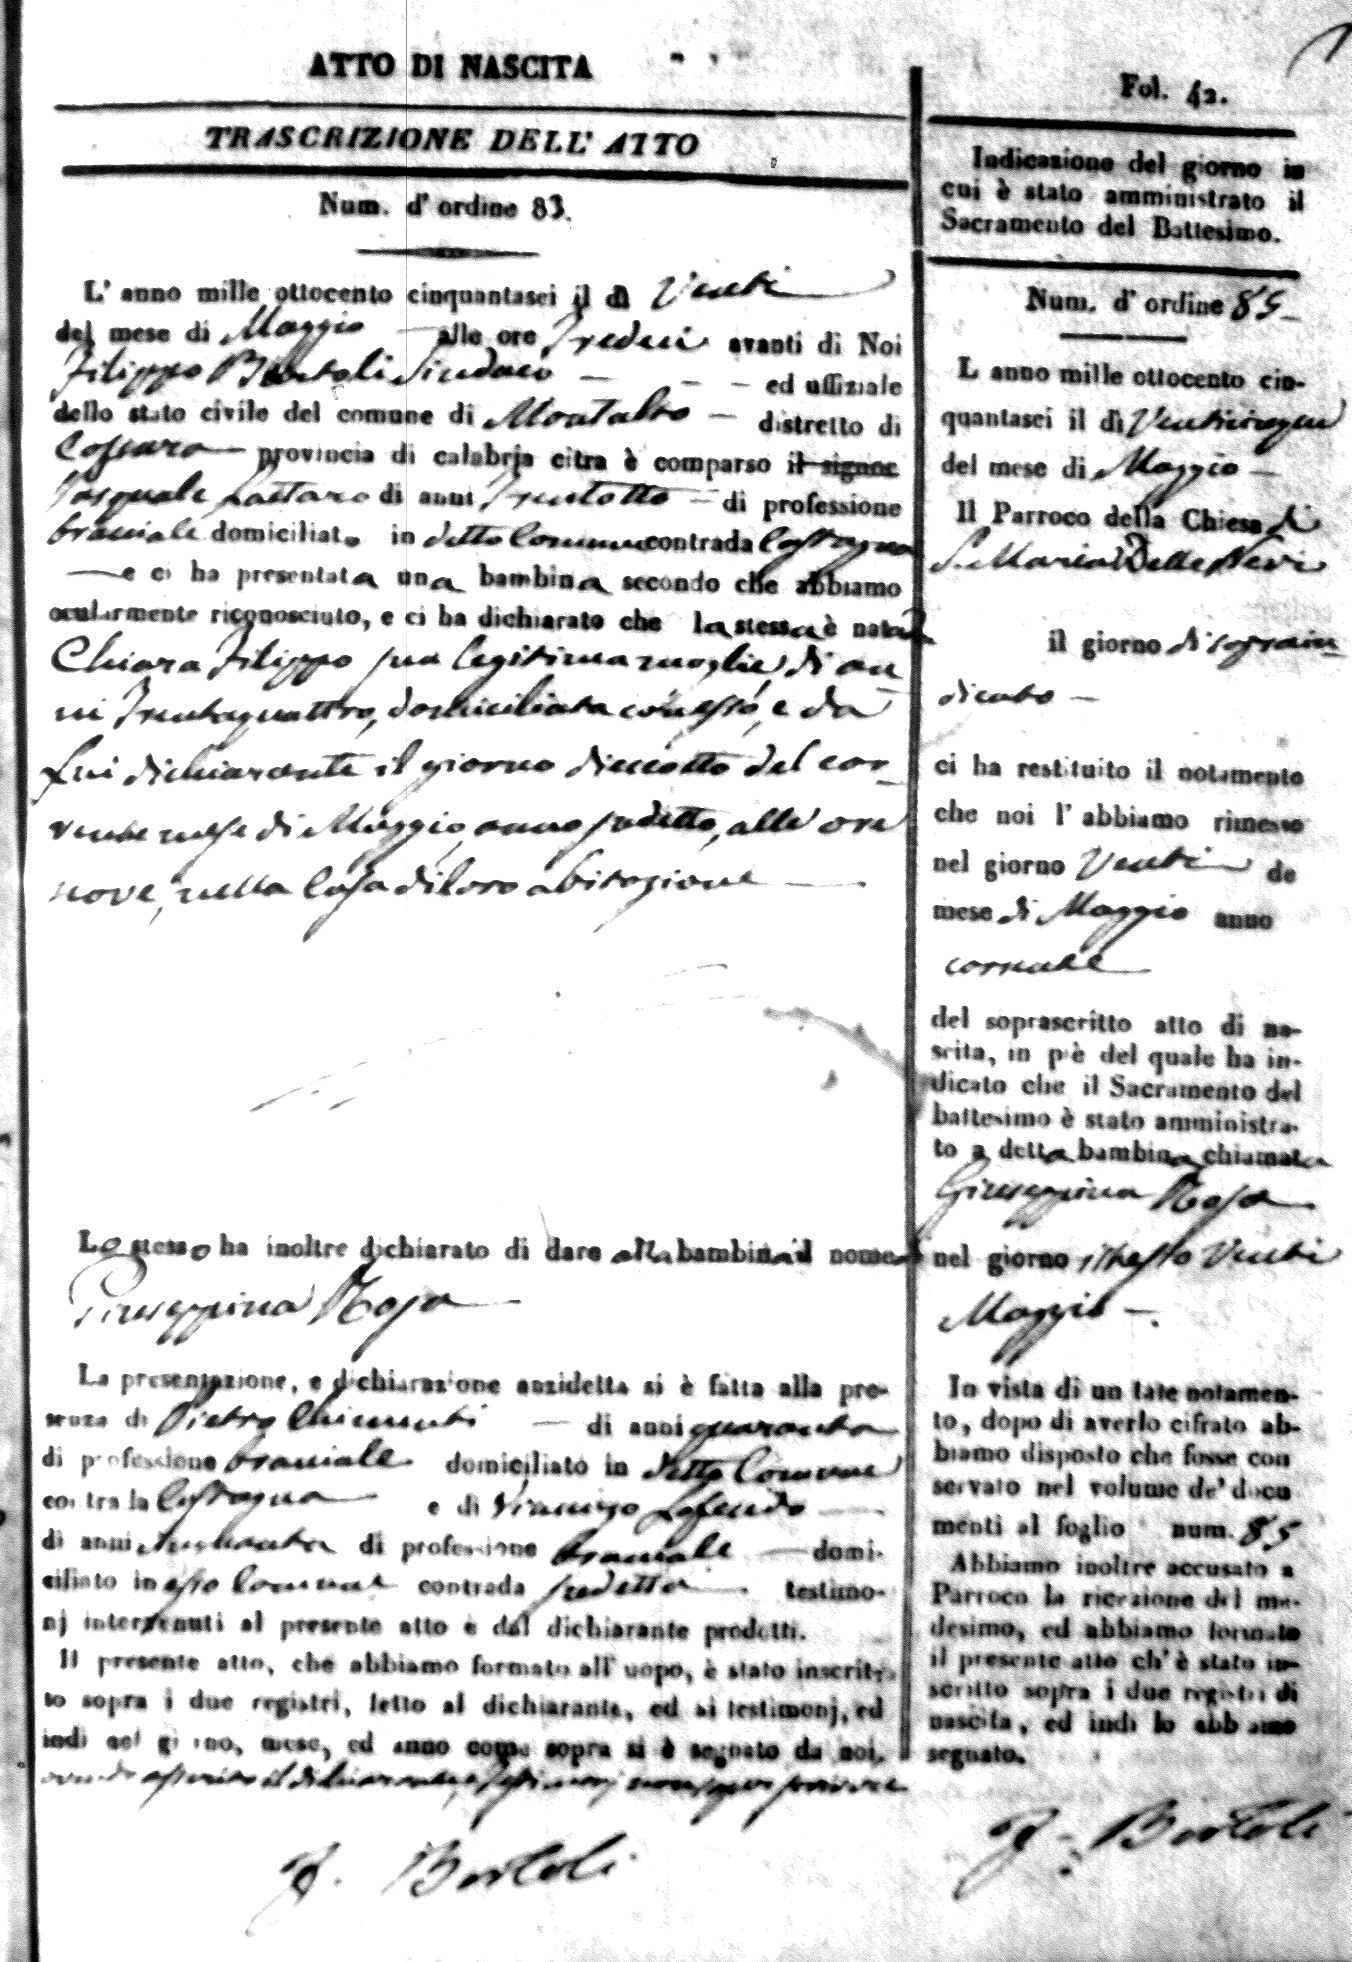 ATTO DI NASCITA
TRASCRIZIONE DELL' ATTO
Num. d' ordine 83.
L' anno mille ottocento cinquantasei il dì Venti
del mese di Maggio alle ore Tredici avanti di Noi
Filippo Bartoli Sindaco ed uffiziale
dello stato civile del comune di Montalto distretto di
Cosenza provincia di calabria citra è comparso il signor
Pasquale di anni Trentotto di professione
bracciale domiciliato in detto Comune contrada
e ci ha presentata una bambina secondo che abbiamo
ocularmente riconosciuto, e ci ha dichiarato che la stessa è nata da
Chiara Filippo sua legitima moglie, di an
ni Trentaquattro, domiciliata con esso, e da
Lui dichiarante il giorno dieciotto del cor
rente mese di Maggio, anno sudetto, alle ore
nove, nella Casa di loro abitazione
Lo stesso ha inoltre dichiarato di dare alla bambina il nome di
Giuseppina Rosa
La presentazione, e dichiarazione anzidetta si è fatta alla pre-
senza di Pietro Chimenti di anni quaranta
di professione bracciale domiciliato in detto Comune
contrada e di
di anni cinquanta di professione bracciale domi-
ciliato in esso Comune contrada sudetta testimo-
nj intervenuti al presente atto e dal dichiarante prodotti.
Il presente atto, che abbiamo formato all' uopo, è stato inscrit-
to sopra i due registri, letto al dichiarante, ed ai testimonj, ed
indi nel giorno, mese, ed anno come sopra si è segnato da noi,
avendo asserito il dichiarante, e testimonj non saper scrivere
F. Bartoli
Fol. 42.
Indicazione del giorno in
cui è stato amministrato il
Sacramento del Battesimo.
Num. d' ordine 85
L anno mille ottocento cin-
quantasei il dì Venticinque
del mese di Maggio
Il Parroco della Chiesa di
S. Maria Delle Nevi
il giorno di sopra in
dicato
ci ha restituito il notamento
che noi l' abbiamo rimesso
nel giorno Venti de
mese di Maggio anno
corrente
del soprascritto atto di na-
scita, in piè del quale ha in-
dicato che il Sacramento del
battesimo è stato amministra-
to a detta bambina chiamata
Giuseppina Rosa
nel giorno istesso Venti
Maggio
In vista di un tale notamen-
to, dopo di averlo cifrato ab-
biamo disposto che fosse con
servato nel volume de' docu
menti al foglio num. 85
Abbiamo inoltre accusato a
Parroco la ricezione del me-
desimo, ed abbiamo formato
il presente atto ch' è stato in-
scritto sopra i due registri di
nascita, ed indi lo abbiamo
segnato.
F. Bartoli